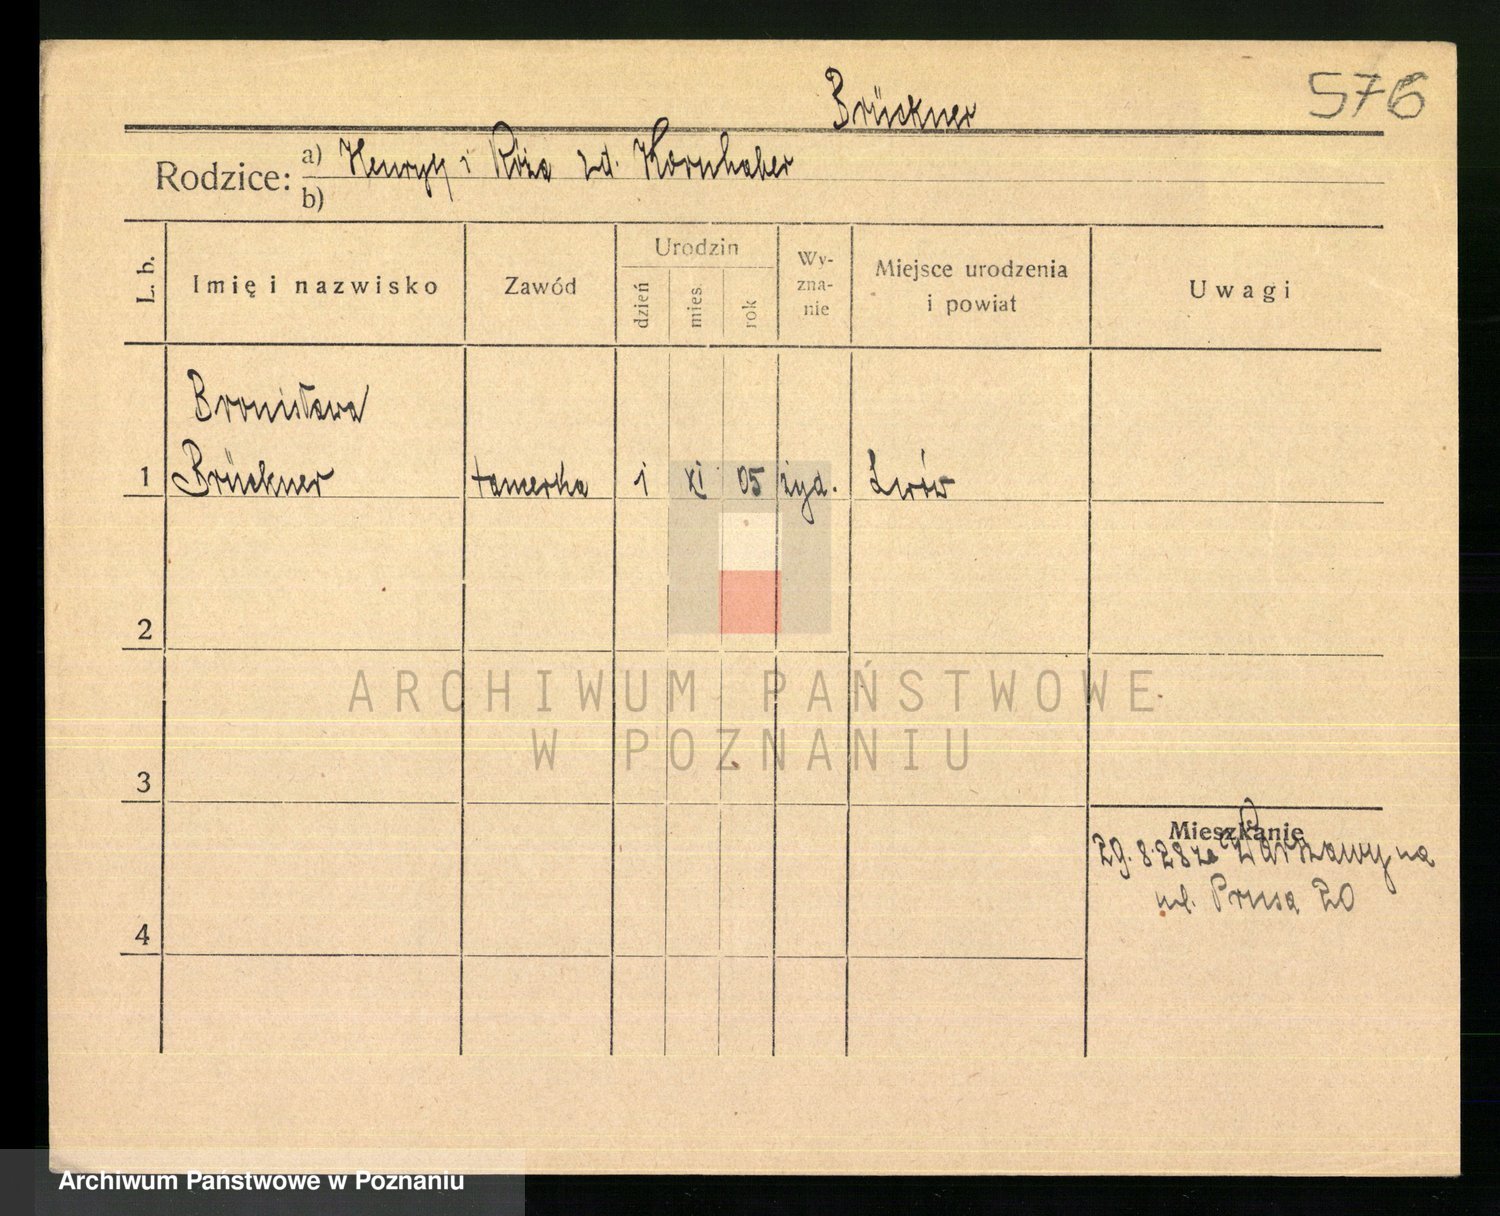 576
Brückner
Rodzice: a) Henryk i Róża zd. Kornhaber
b)
L. b.
Imię i nazwisko
Zawód
Urodzin
dzień
mies.
rok
Wy-
zna-
nie
Miejsce urodzenia
i powiat
Uwagi
Bronisława
1 Brückner tancerka 1 XI 05 żyd. Lwów
2
3
4
Mieszkanie
29.8.28 ze Warszawy na
ul. Prusa 20
ARCHIWUM PAŃSTWOWE
W POZNANIU
Archiwum Państwowe w Poznaniu